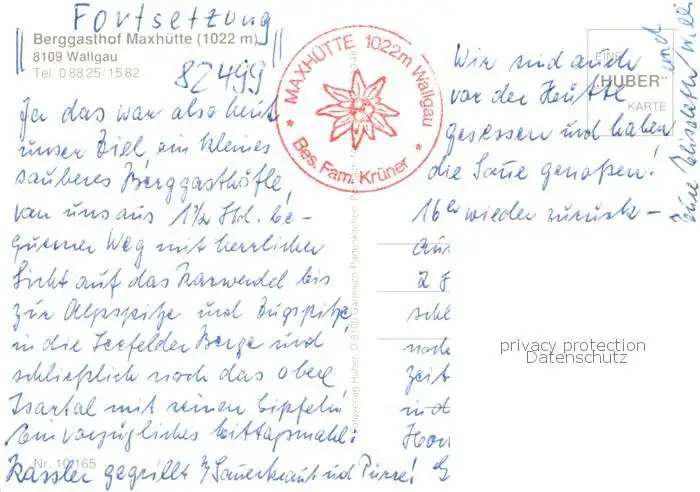 Fortsetzung
Berggasthof Maxhütte (1022 m)
8109 Wallgau
Tel. 0 88 25 / 15 82
82499
Ja das war also heut
unser Ziel, ein kleines
sauberes Berggasthöfle,
von uns aus 1 1/2 Std. be-
quemer Weg mit herrlicher
Sicht auf das Karwendel bis
zur Alpspitze und Zugspitze,
in die Seefelder Berge und
schließlich noch das obere
Isartal mit seinen Gipfeln!
Ein vorzügliches Mittagsmahl:
Kassler gegrillt m/Sauerkraut und Püree!
Nr. 10/165
MAXHÜTTE 1022m Wallgau
* Bes. Fam. Krüner *
Fotoverlag Huber, D-8100 Garmisch-Partenkirchen
EINE
"HUBER"
KARTE
Wir sind auch
vor der Hütte
gesessen und haben
die Sonne genoßen!
16h wieder zurück –
aus
2
schl
noch
Zeit
und
privacy protection
Datenschutz
Eure Elisabeth und